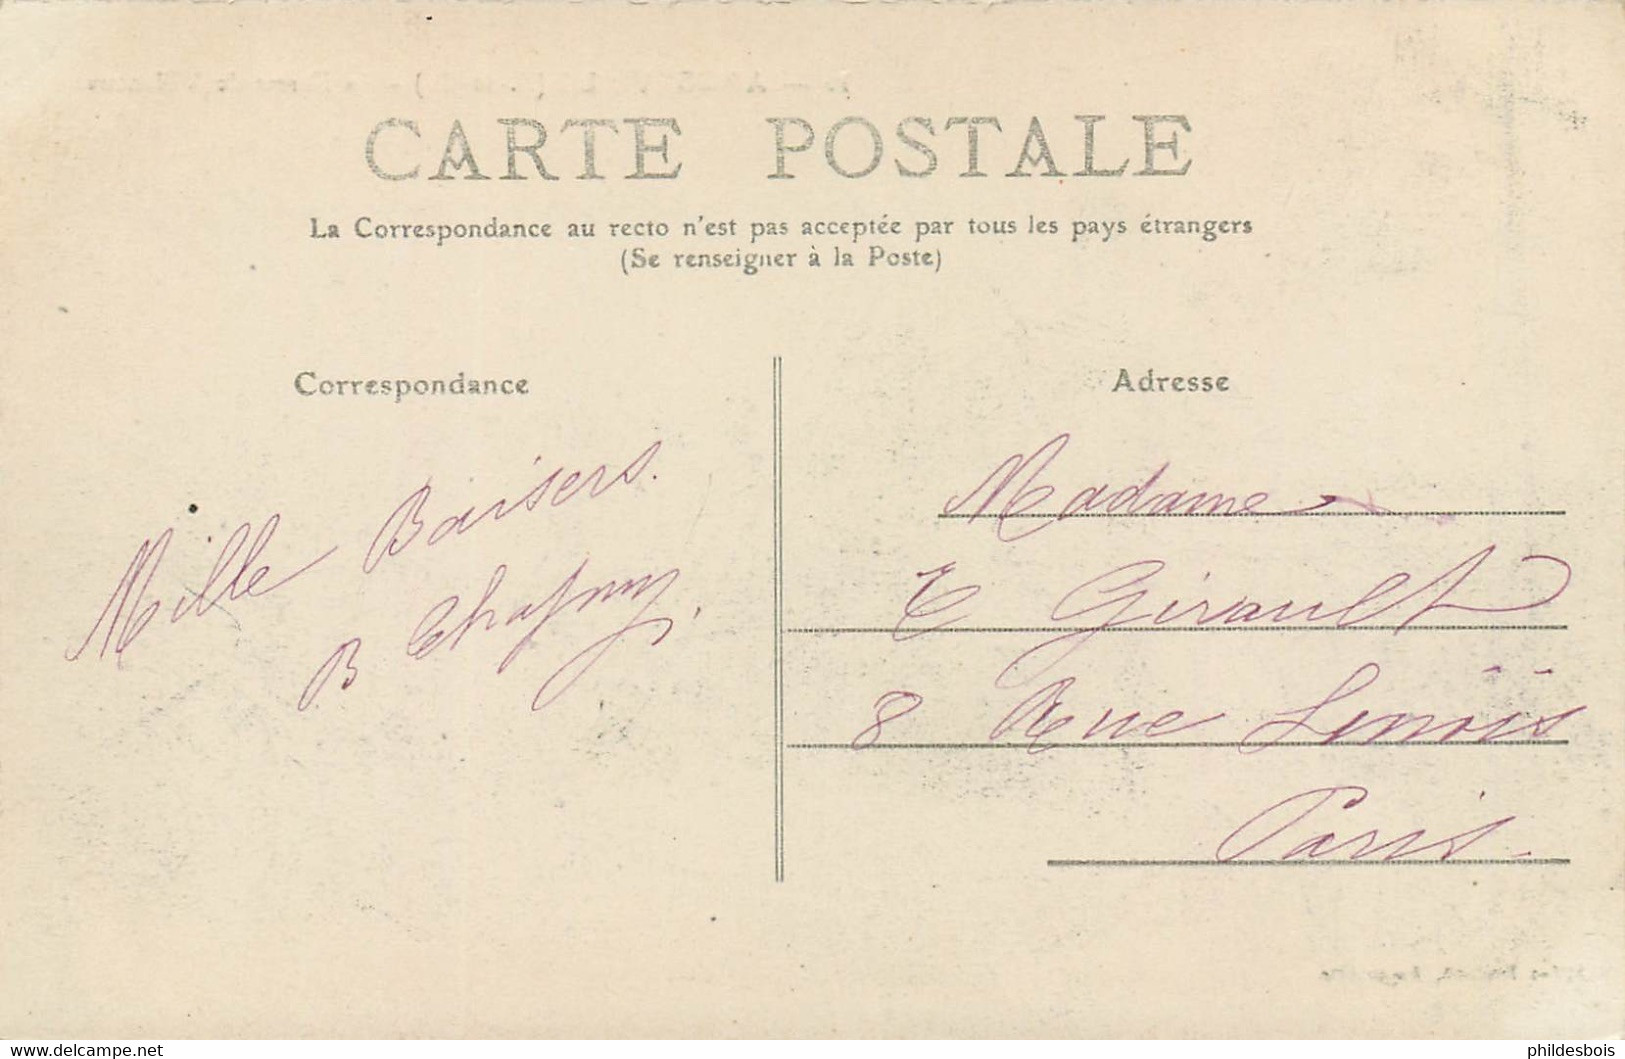 CARTE POSTALE
La Correspondance au recto n'est pas acceptée par tous les pays étrangers
(Se renseigner à la Poste)
Correspondance
Mille Baisers.
B
Adresse
Madame
E Girault
8 Rue
Paris.
www.delcampe.net
phildesbois